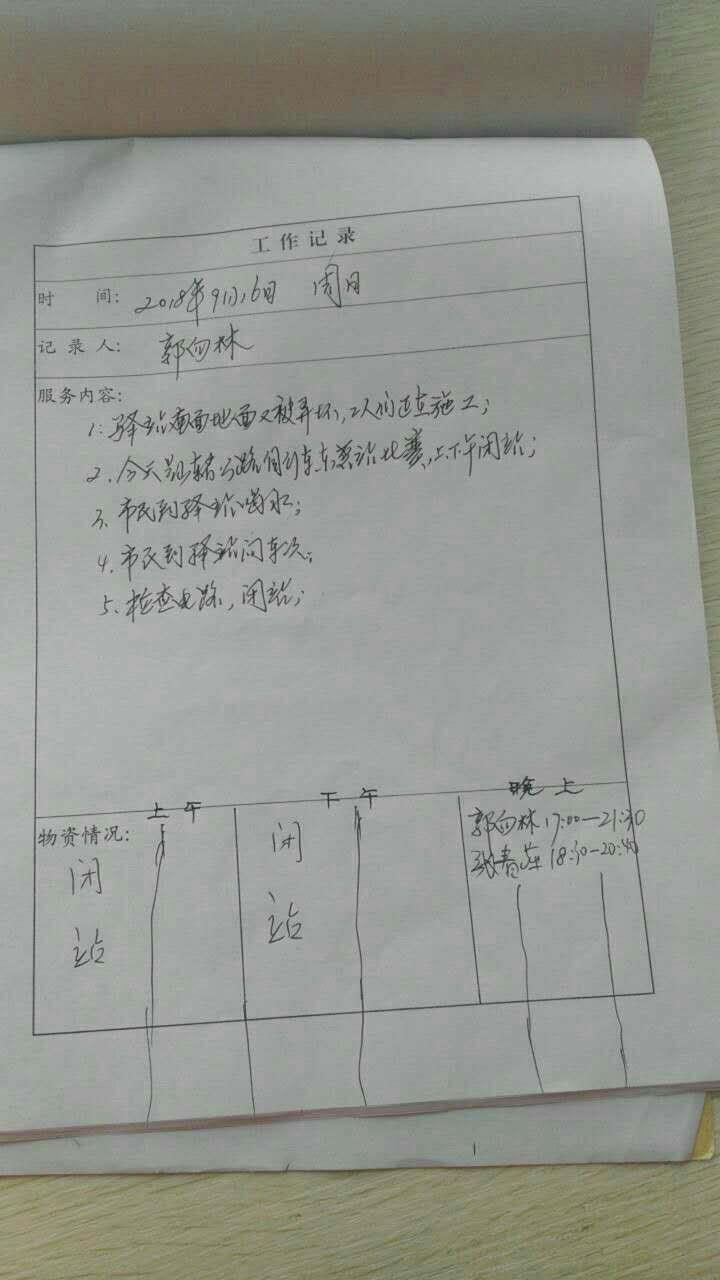 工作记录
时 间: 2018年9月16日 周日
记录人: 郭向林
服务内容:
1. 驿站南面地面又被弄坏,工人们正在施工;
2. 今天是环 公路自行车 站比赛,上下午闭站;
3. 市民到驿站喝水;
4. 市民到驿站问车次;
5. 检查电路,闭站;
上午 下午 晚上
物资情况:
闭站 闭站
郭向林 17:00—21:30
张春 18:30-20:40